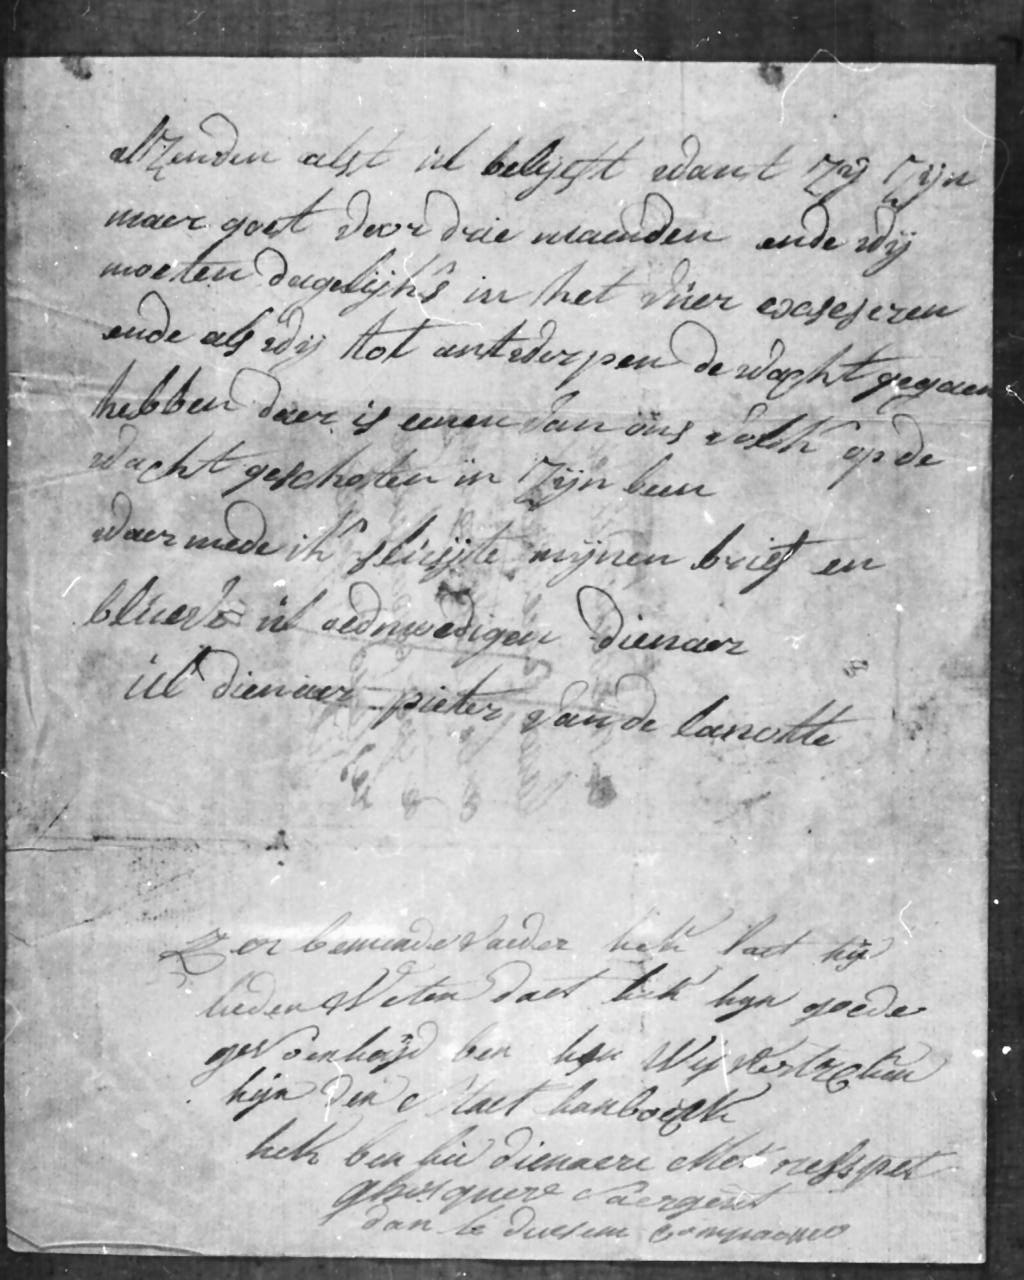 al Zenden alst ul belijft want Zij Zijn
maer goet voor drie maenden ende wij
moeten dagelijks in het vier exseseren
ende als wij tot antwerpen de wacht gegaen
hebben daer is eenen van ons volck op de
wacht geschoten in Zijn been
waer mede ik sluijte mijnen brief en
blieve ul oedmoedigen dienaer
ul dienaer pieter van de lanotte
Zer beminde vaeder hek laet hij
lieden Weten daet hek hyn goede
gesoenheijd ben hen Wij vertrecken
hijn den Staet
hek ben hu dienaere Met respet
ghisquere Saergent
compagnie